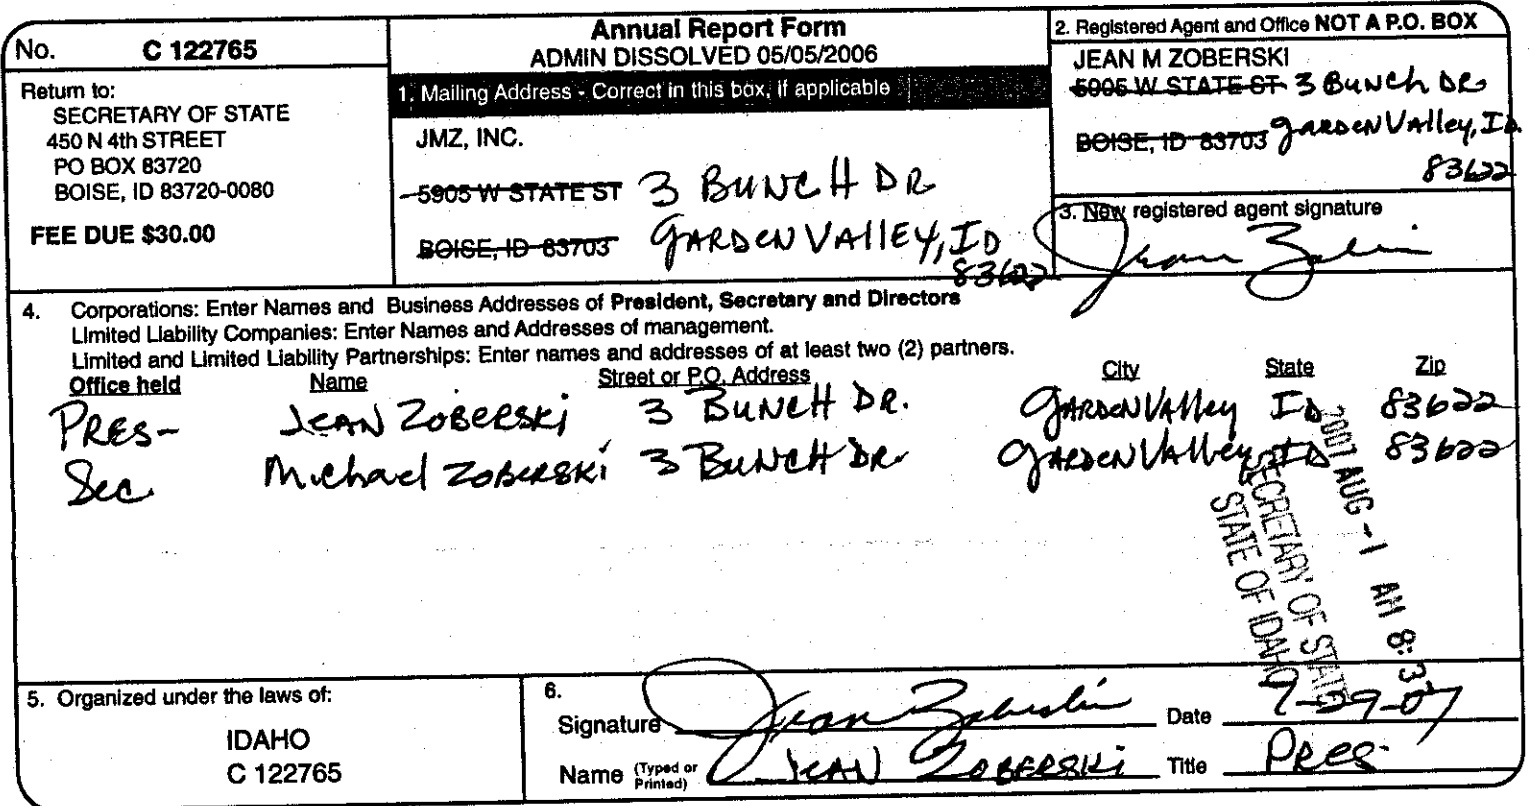 No. C 122765
Return to:
SECRETARY OF STATE
450 N 4th STREET
PO BOX 83720
BOISE, ID 83720-0080
FEE DUE $30.00
Annual Report Form
ADMIN DISSOLVED 05/05/2006
1. Mailing Address - Correct in this box, if applicable
JMZ, INC.
5905 W STATE ST 3 BUNCH DR
BOISE, ID 83703 GARDEN VALLEY, ID
83622
2. Registered Agent and Office NOT A P.O. BOX
JEAN M ZOBERSKI
5905 W STATE ST 3 BUNCH DR
BOISE, ID 83703 GARDEN VAlley, ID.
83622
3. New registered agent signature
4. Corporations: Enter Names and Business Addresses of President, Secretary and Directors
Limited Liability Companies: Enter Names and Addresses of management.
Limited and Limited Liability Partnerships: Enter names and addresses of at least two (2) partners.
Office held Name Street or P.O. Address City State Zip
PRES- JEAN ZOBERSKi 3 BUNCH DR. GARDEN VAlley ID 83622
Sec. Michael ZOBERSKi 3 BUNCH DR. GARDEN VAlley ID 83622
2007 AUG -1 AM 8:3
SECRETARY OF STATE
STATE OF IDAHO
5. Organized under the laws of:
IDAHO
C 122765
6.
Signature Jean Zoberski Date 7-29-07
Name (Typed or Printed) JEAN ZOBERSKi Title PRES.